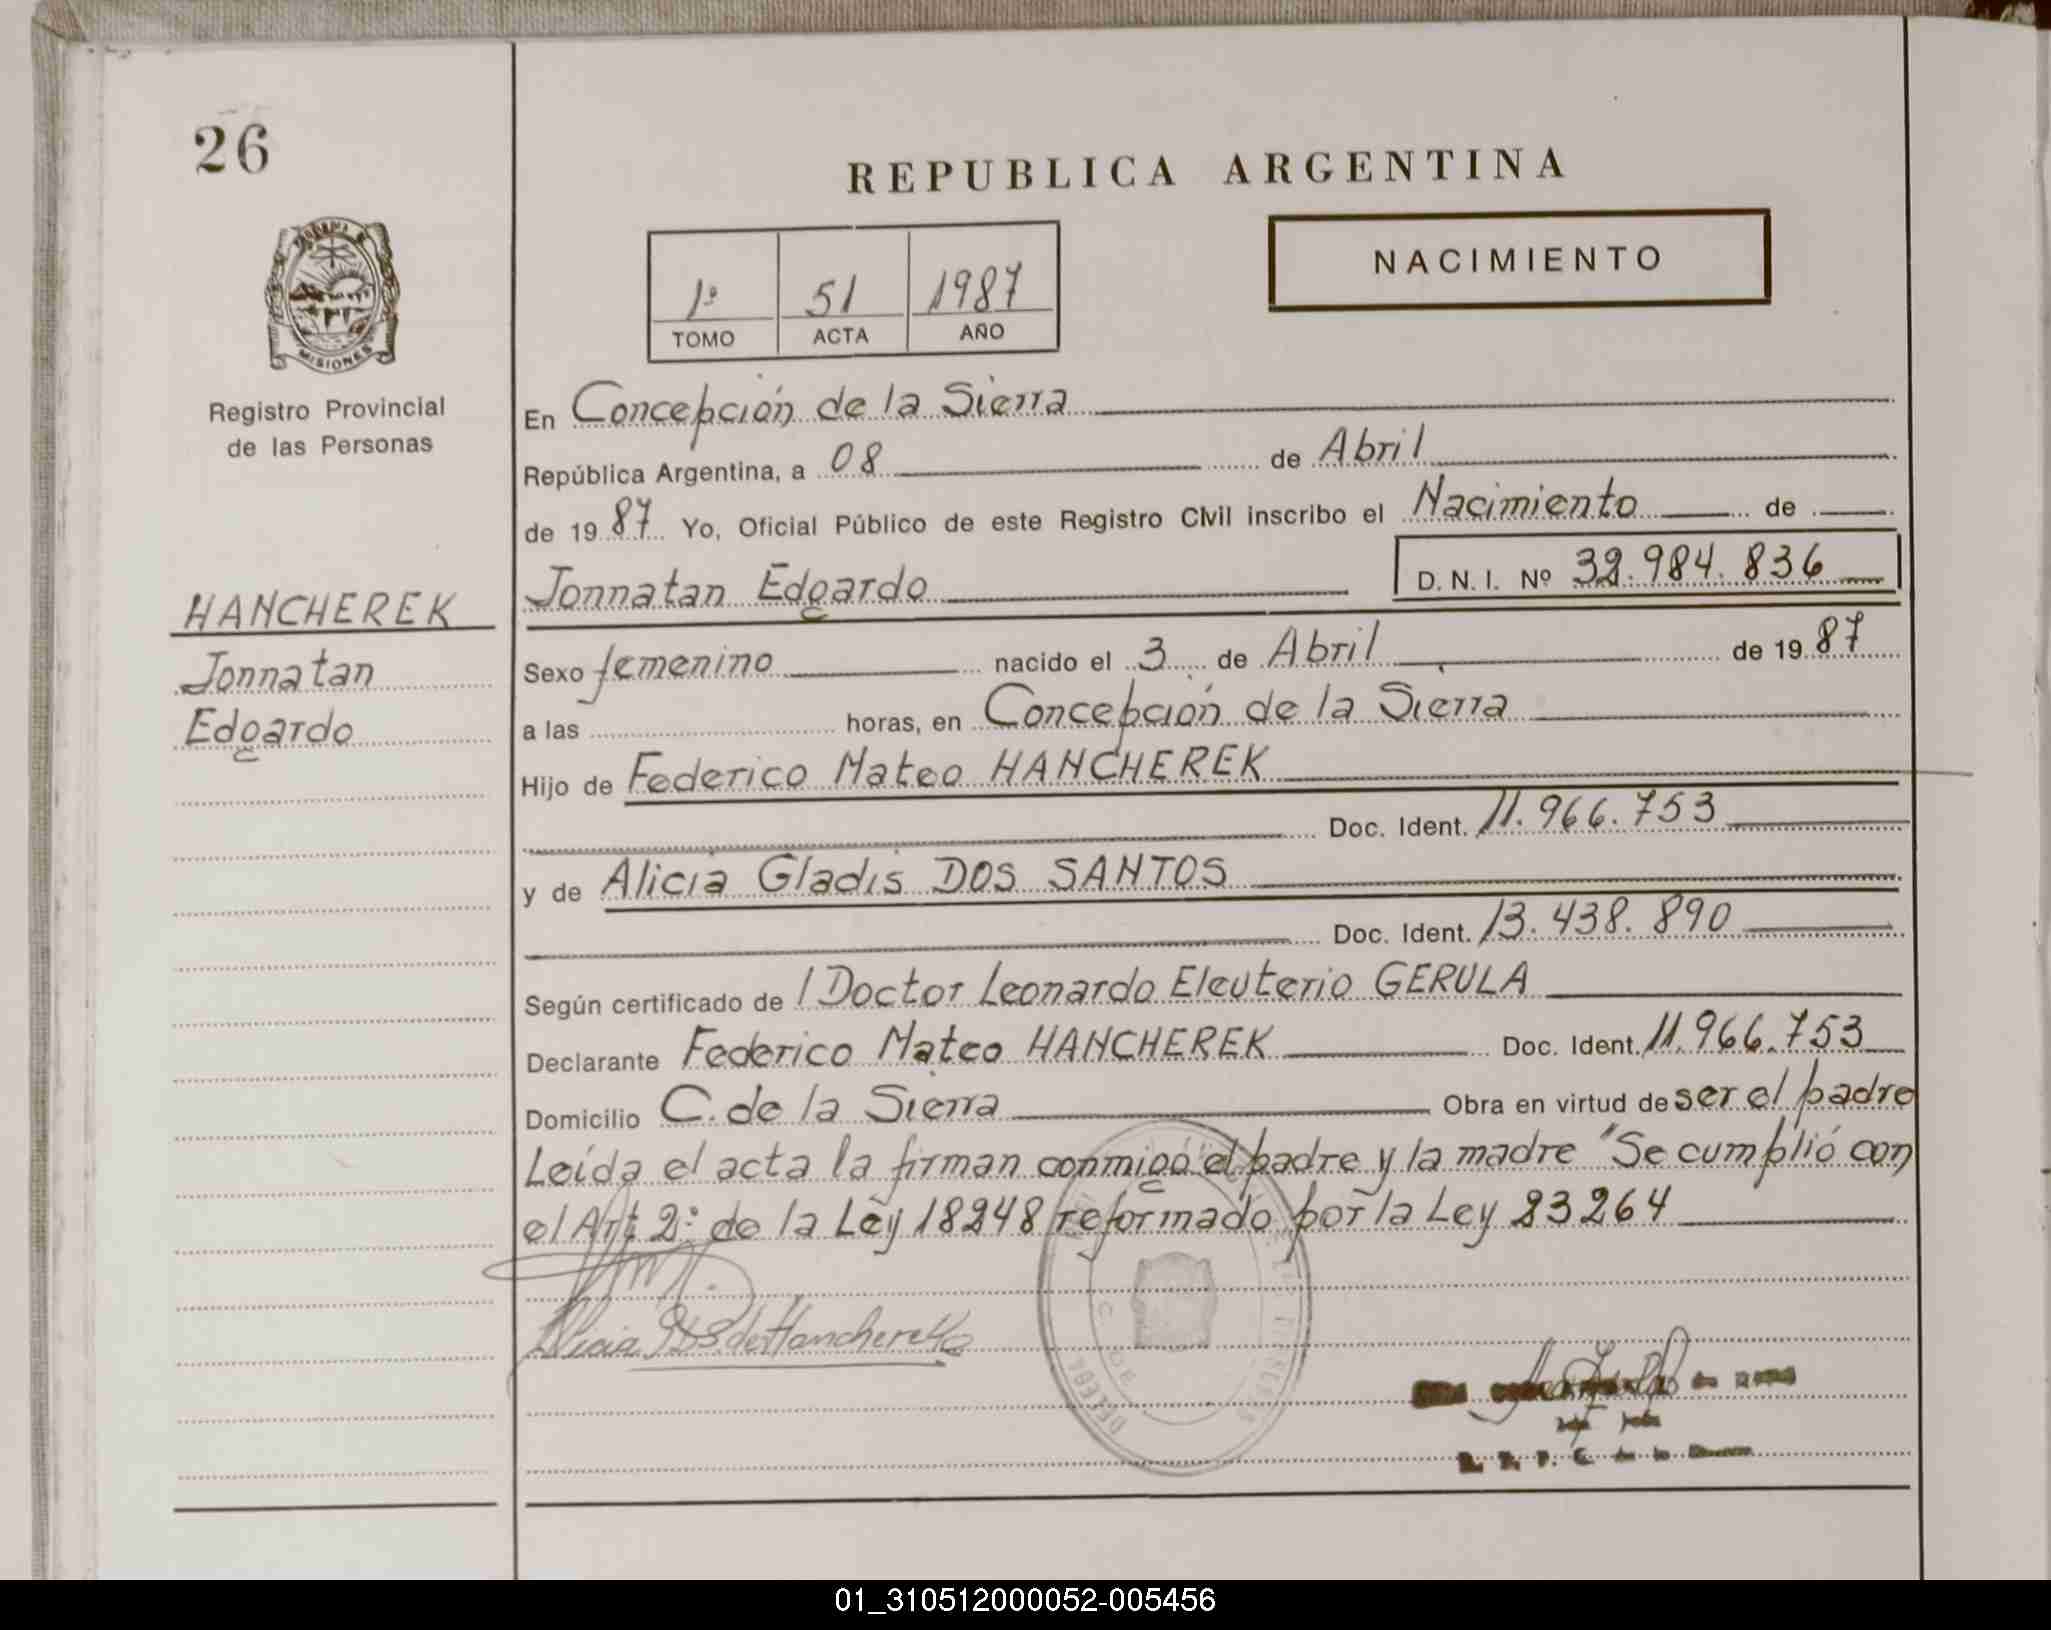 26
REPUBLICA ARGENTINA
NACIMIENTO
1º 51 1987
TOMO ACTA AÑO
MISIONES
Registro Provincial
de las Personas
HANCHEREK
Jonnatan
Edgardo
En Concepción de la Sierra
República Argentina, a 08 de Abril
de 1987 Yo, Oficial Público de este Registro Civil inscribo el Nacimiento de
Jonnatan Edgardo D.N.I. Nº 32.984.836
Sexo femenino nacido el 3 de Abril de 1987
a las horas, en Concepción de la Sierra
Hijo de Federico Mateo HANCHEREK
Doc. Ident. 11.966.753
y de Alicia Gladis DOS SANTOS
Doc. Ident. 13.438.890
Según certificado de l Doctor Leonardo Eleuterio GERULA
Declarante Federico Mateo HANCHEREK Doc. Ident. 11.966.753
Domicilio C. de la Sierra Obra en virtud de ser el padre
Leída el acta la firman conmigo el padre y la madre "Se cumplió con
el Art 2º de la Ley 18248 reformado por la Ley 23264
Alicia de Hancherek
01_310512000052-005456